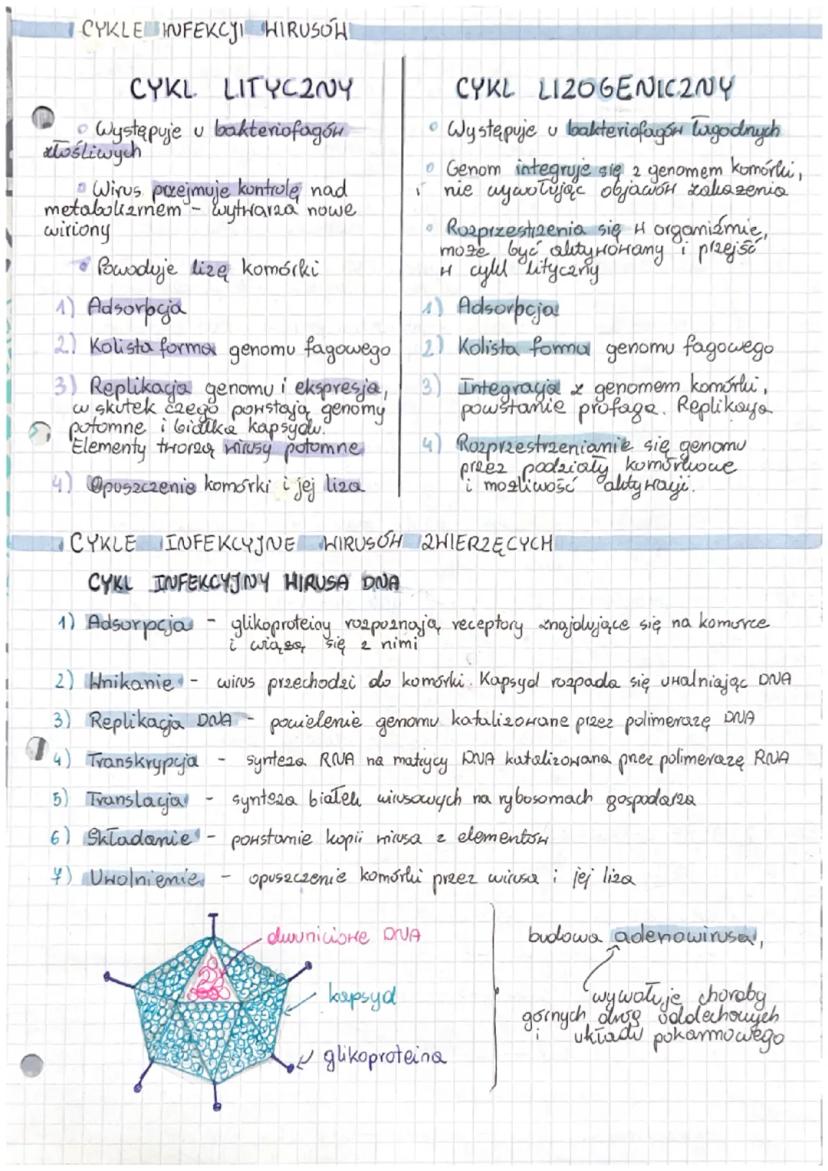 CYKLE INFEKCJI WIRUSÓW
CYKL LITYCZNY
Występuje u bakteriofagów
złośliwych
Wirus przejmuje kontrolę nad
metabolizmem - wytwarza nowe
wiriony
Powoduje lizę komórki
1) Adsorbcja
2) Kolista forma genomu fagowego
3) Replikacja genomu i ekspresja,
w skutek czego powstają genomy
potomne i białka kapsydu.
Elementy tworzą wirusy potomne
4) Opuszczenie komórki i jej liza
CYKL LIZOGENICZNY
Występuje u bakteriofagów łagodnych
Genom integruje się z genomem komórki,
nie wywołując objawów zakażenia
Rozprzestrzenia się w organizmie,
może być aktywowany i przejść
w cykl lityczny
1) Adsorbcja
2) Kolista forma genomu fagowego
3) Integracja z genomem komórki,
powstanie profaga. Replikacja
4) Rozprzestrzenianie się genomu
przez podziały komórkowe
i możliwość aktywacji.
CYKLE INFEKCYJNE WIRUSÓW ZWIERZĘCYCH
CYKL INFEKCYJNY WIRUSA DNA
1) Adsorpcja - glikoproteiny rozpoznają receptory znajdujące się na komórce
i wiążą się z nimi
2) Wnikanie - wirus przechodzi do komórki. Kapsyd rozpada się uwalniając DNA
3) Replikacja DNA - powielenie genomu katalizowane przez polimerazę DNA
4) Transkrypcja - synteza RNA na matrycy DNA katalizowana przez polimerazę RNA
5) Translacja - synteza białek wirusowych na rybosomach gospodarza
6) Składanie - powstanie kopii wirusa z elementów
7) Uwolnienie - opuszczenie komórki przez wirusa i jej liza
dwuniciowe DNA
kapsyd
glikoproteina
budowa adenowirusa,
wywołuje choroby
górnych dróg oddechowych
i układu pokarmowego